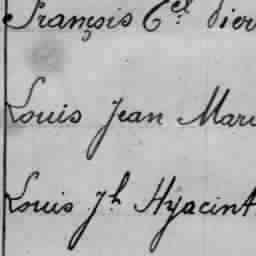 François Cel dier
Louis Jean Mari
Louis Jh Hyacint